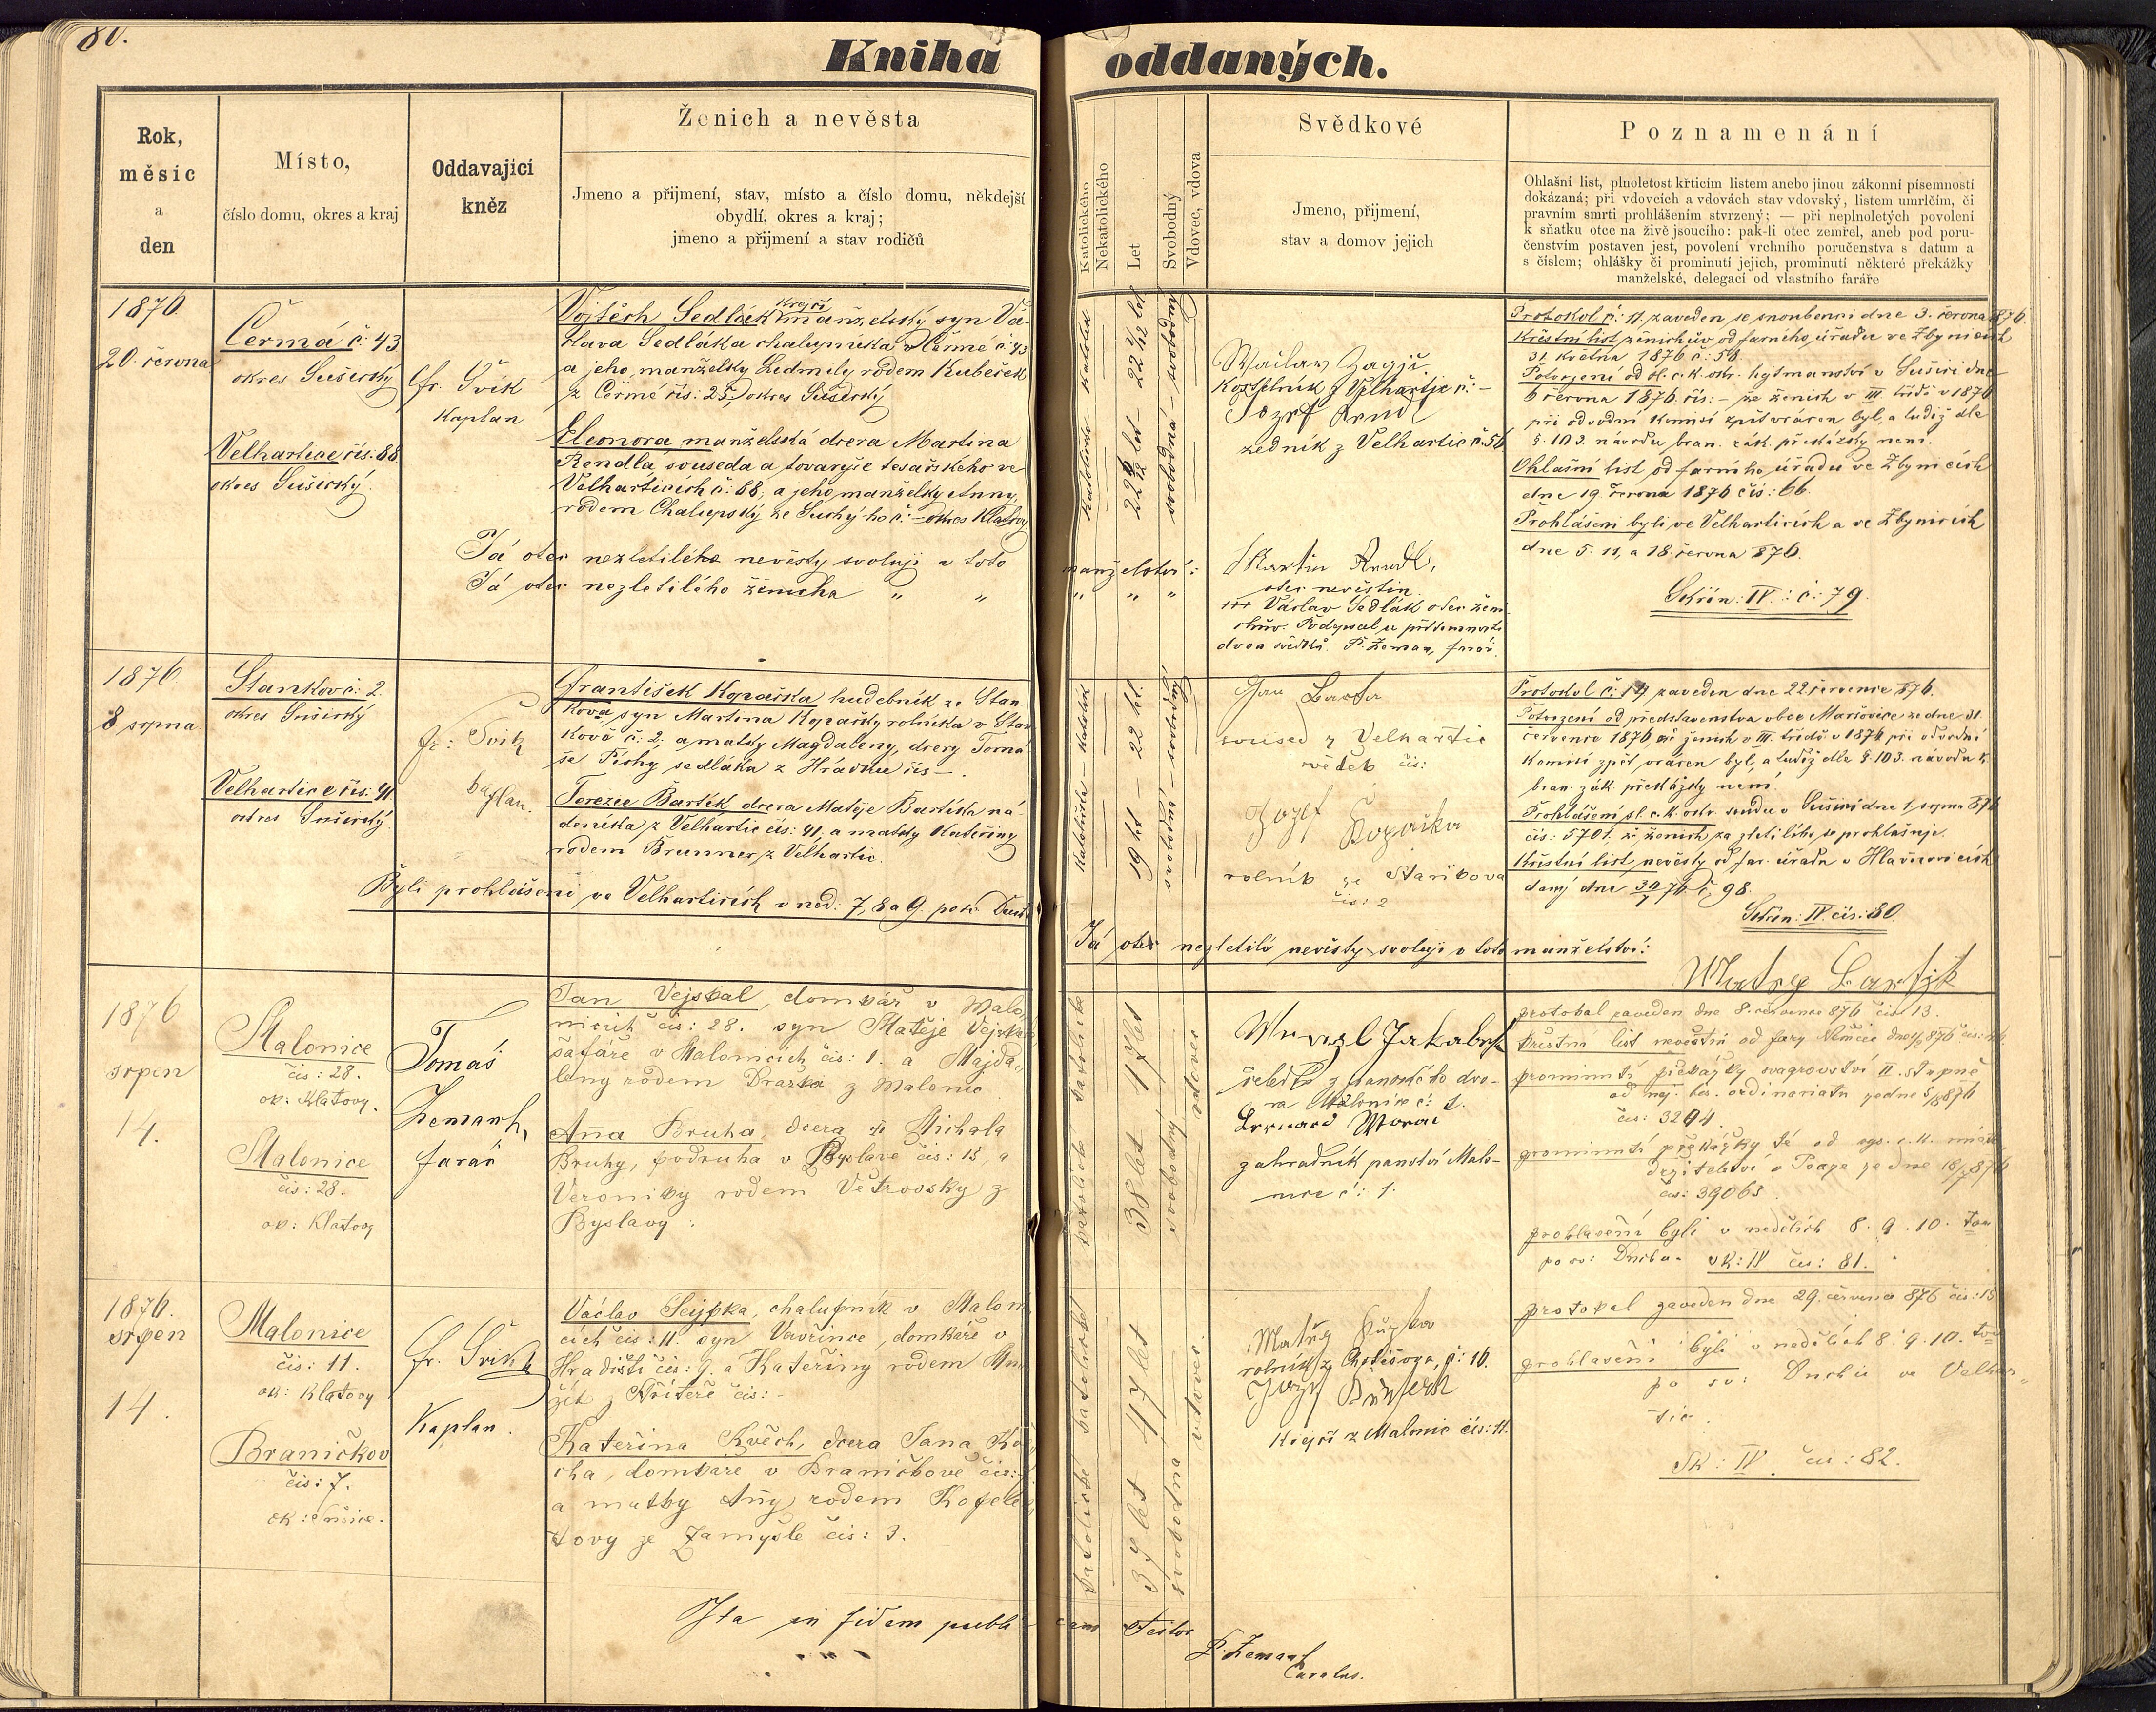 80.
Kniha oddaných.
Rok,
měsíc
a
den
Místo,
číslo domu, okres a kraj
Oddavající
kněz
Ženich a nevěsta
Jmeno a přijmení, stav, místo a číslo domu, někdejší
obydlí, okres a kraj;
jmeno a přijmení a stav rodičů
Katolického
Nekatolického
Let
Svobodný
Vdovec, vdova
Svědkové
Jmeno, přijmení,
stav a domov jejich
Poznamenání
Ohlašní list, plnoletost křticím listem anebo jinou zákonní písemností
dokázaná; při vdovcích a vdovách stav vdovský, listem umrlčím, či
pravním smrti prohlášením stvrzený; — při neplnoletých povolení
k sňatku otce na živě jsoucího: pak-li otec zemřel, aneb pod poru-
čenstvím postaven jest, povolení vrchního poručenstva s datum a
s číslem; ohlášky či prominutí jejich, prominutí některé překážky
manželské, delegací od vlastního faráře
1876
20. června
Čermá č: 43
okres Sušický
Velhartice čís: 88
okres Sušický
fr. Švík
Kaplan
Krejčí
Vojtěch Sedlák manželský syn Vá-
clava Sedláka chalupníka v Čermé č: 43
a jeho manželky Ludmily rodem Kubeček
z Čermé čís: 25, okres Sušický
Eleonora manželská dcera Martina
Rendla souseda a tovaryše tesařského ve
Velharticích č: 88, a jeho manželky Anny,
rodem Chalupský ze Suchý-ho č: – okres Klatovy
Já otec nezletilého nevěsty svoluji v toto manželství:
Já otec nezletilého ženicha " " " " "
katolická katolík
22 let 22 let
svobodná – svobodný
z Velhartic č: –
Jozef Rendl
zedník z Velhartic č: 56
Martin Rendl,
otec nevěstin
+++ Václav Sedlák otec ženi-
chův. Podepsal u přítomnosti
dvou svědků. P. Zeman, farář.
Protokol č: 11. zaveden se snoubenci dne 3. června 876.
Křestní list ženichův od farního úřadu ve Zbynicích
31. května 1876 č: 58.
Potvrzení od sl. c. k. okr. hejtmanství v Sušici dne
6 června 1876. čís: – že ženich v III třídě v 1876
při odvodní komisi zpět vrácen byl, a tudíž dle
§. 103. návodu bran. zák. překážky není.
Ohlašní list od farního úřadu ve Zbynicích
dne 19. června 1876 čís: 66.
Prohlášeni byli ve Velharticích a ve Zbynicích
dne 5. 11, a 18. června 876.
Skřín: IV. : č: 79.
1876
8 srpna
Stankov č: 2.
okres Sušický
Velhartice čís: 41
okres Sušický
fr: Švík
kaplan.
František Kopačka hudebník ze Stan-
kova, syn Martina Kopačky rolníka v Stan-
kově č: 2, a matky Magdaleny, dcery Tomá-
še Píchy sedláka z Hrádku čís – .
Terezie Bartík dcera Matěje Bartíka ná-
deníka z Velhartic čís: 41, a matky Kateřiny
rodem Brunner z Velhartic.
Byli prohlášeni ve Velharticích v ned: 7, 8 a 9. po sv. Duchu
katolička – katolík
19 let – 22 let
svobodná – svobodný
Jan Barta
soused z Velhartic
svědek čís:
Jozef Kopačka
rolník ze Stankova
čís: 2
Protokol č: 14 zaveden dne 22 července 876.
Potvrzení od představenstva obce Maršovice ze dne 31
července 1876, že ženich v III. třídě v 1876 při odvodní
komisi zpět vrácen byl, a tudíž dle §. 103. návodu k
bran. zák. překážky není.
Prohlášením sl. c. k. okr. soudu v Sušici dne 1. srpna 876
čís: 5701, že ženich za zletilého se prohlašuje.
Křestní list nevěsty od far. úřadu v Hlavňovicích
daný dne 30/7 76 č, 98.
Skřín: IV. čís: 80.
Já otec nezletilé nevěsty svoluji v toto manželství:
Mateg Bartjk
1876
srpen
14.
Malonice
čís: 28.
ok: Klatovy.
Malonice
čís: 28.
ok: Klatovy
Tomáš
Zemank,
farář
Jan Vejskal, domkář v Malo-
nicích čís: 28. syn Matěje Vejskala
šafáře v Malonicích čís: 1. a Majda-
leny rodem Braška z Malonic
Aña Bruha dcera Michala
Bruhy, podruha v Byslavě čís: 15 a
Veroniky rodem Větrovský z
Byslavy :
katolička katolička
38 let 17 let
svobodný vdovec
z panského dvo-
ra Malonice č: 1.
zahradník panství Malo-
nice č: 1.
protokol zaveden dne 8. července 876 čís 13.
křestní list nevěstin od fary Němčice
prominutí překážky švagrovství II. stupně
čís: 3294.
prominutí překážky té od
držitelství v Praze ze dne 18/7 876
čís: 39065.
prohlašeni byli v nedělích 8. 9. 10. tou
po sv: Duchu. sk: IV čís: 81.
1876.
srpen
14.
Malonice
čís: 11.
ok: Klatovy
Braničkov
čís: 7.
ok: Sušice.
fr. Švík
Kaplan.
Václav Sejpka, chalupník v Maloni-
cích čís: 11. syn Vavřince, domkáře v
Hradišti čís: 9. a Kateřiny rodem
čís: –
Kateřina Kvěch, dcera Jana Kvě-
cha, domkáře v Braničkově čís: 7.
a matky Añy rodem
ze Zamyšle čís: 3.
katolické katolické
39 let 47 let
svobodna vdovec.
rolník z Chotěšova, č: 16.
Krejčí z Malonic čís: 11.
protokol zaveden dne 29. července 876 čís: 15
prohlašeni byli v nedělích 8. 9. 10. tou
po sv: Duchu ve Velhar-
tic.
Sk: IV čís: 82.
Ita in fidem publicam Testor
P. Zemank
Curatus.